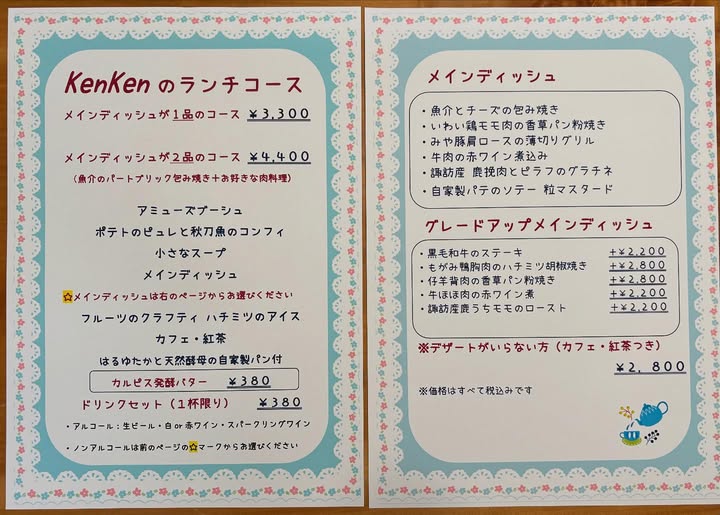 KenKen のランチコース
メインディッシュが1品のコース ¥3,300
メインディッシュが2品のコース ¥4,400
(魚介のパートブリック包み焼き+お好きな肉料理)
アミューズブーシュ
ポテトのピュレと秋刀魚のコンフィ
小さなスープ
メインディッシュ
☆メインディッシュは右のページからお選びください
フルーツのクラフティ ハチミツのアイス
カフェ・紅茶
はるゆたかと天然酵母の自家製パン付
カルピス発酵バター ¥380
ドリンクセット(1杯限り) ¥380
・アルコール:生ビール・白or赤ワイン・スパークリングワイン
・ノンアルコールは前のページの☆マークからお選びください
メインディッシュ
・魚介とチーズの包み焼き
・いわい鶏モモ肉の香草パン粉焼き
・みや豚肩ロースの薄切りグリル
・牛肉の赤ワイン煮込み
・諏訪産 鹿挽肉とピラフのグラチネ
・自家製パテのソテー 粒マスタード
グレードアップメインディッシュ
・黒毛和牛のステーキ +¥2,200
・もがみ鴨胸肉のハチミツ胡椒焼き +¥2,800
・仔羊背肉の香草パン粉焼き +¥2,800
・牛ほほ肉の赤ワイン煮 +¥2,200
・諏訪産鹿うちモモのロースト +¥2,200
※デザートがいらない方(カフェ・紅茶つき)
¥2,800
※価格はすべて税込みです